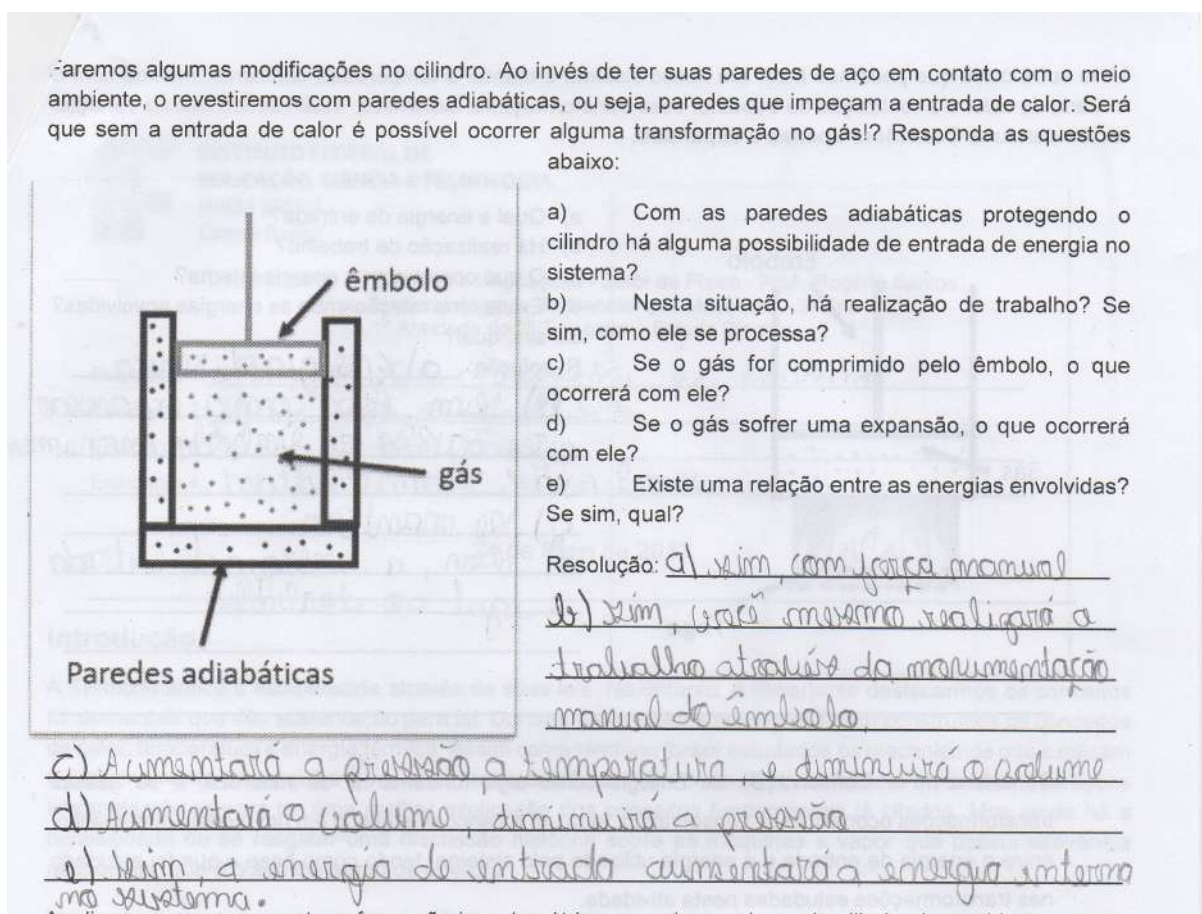 Faremos algumas modificações no cilindro. Ao invés de ter suas paredes de aço em contato com o meio
ambiente, o revestiremos com paredes adiabáticas, ou seja, paredes que impeçam a entrada de calor. Será
que sem a entrada de calor é possível ocorrer alguma transformação no gás!? Responda as questões
abaixo:
êmbolo
gás
Paredes adiabáticas
a) Com as paredes adiabáticas protegendo o
cilindro há alguma possibilidade de entrada de energia no
sistema?
b) Nesta situação, há realização de trabalho? Se
sim, como ele se processa?
c) Se o gás for comprimido pelo êmbolo, o que
ocorrerá com ele?
d) Se o gás sofrer uma expansão, o que ocorrerá
com ele?
e) Existe uma relação entre as energias envolvidas?
Se sim, qual?
Resolução: a) sim, com força manual
b) sim, você mesmo realizará o
trabalho através da movimentação
manual do êmbolo,
c) Aumentará a pressão a temperatura e diminuirá o volume
d) Aumentará o volume, diminuirá a pressão
e) sim, a energia de entrada aumentará a energia interna
no sistema.